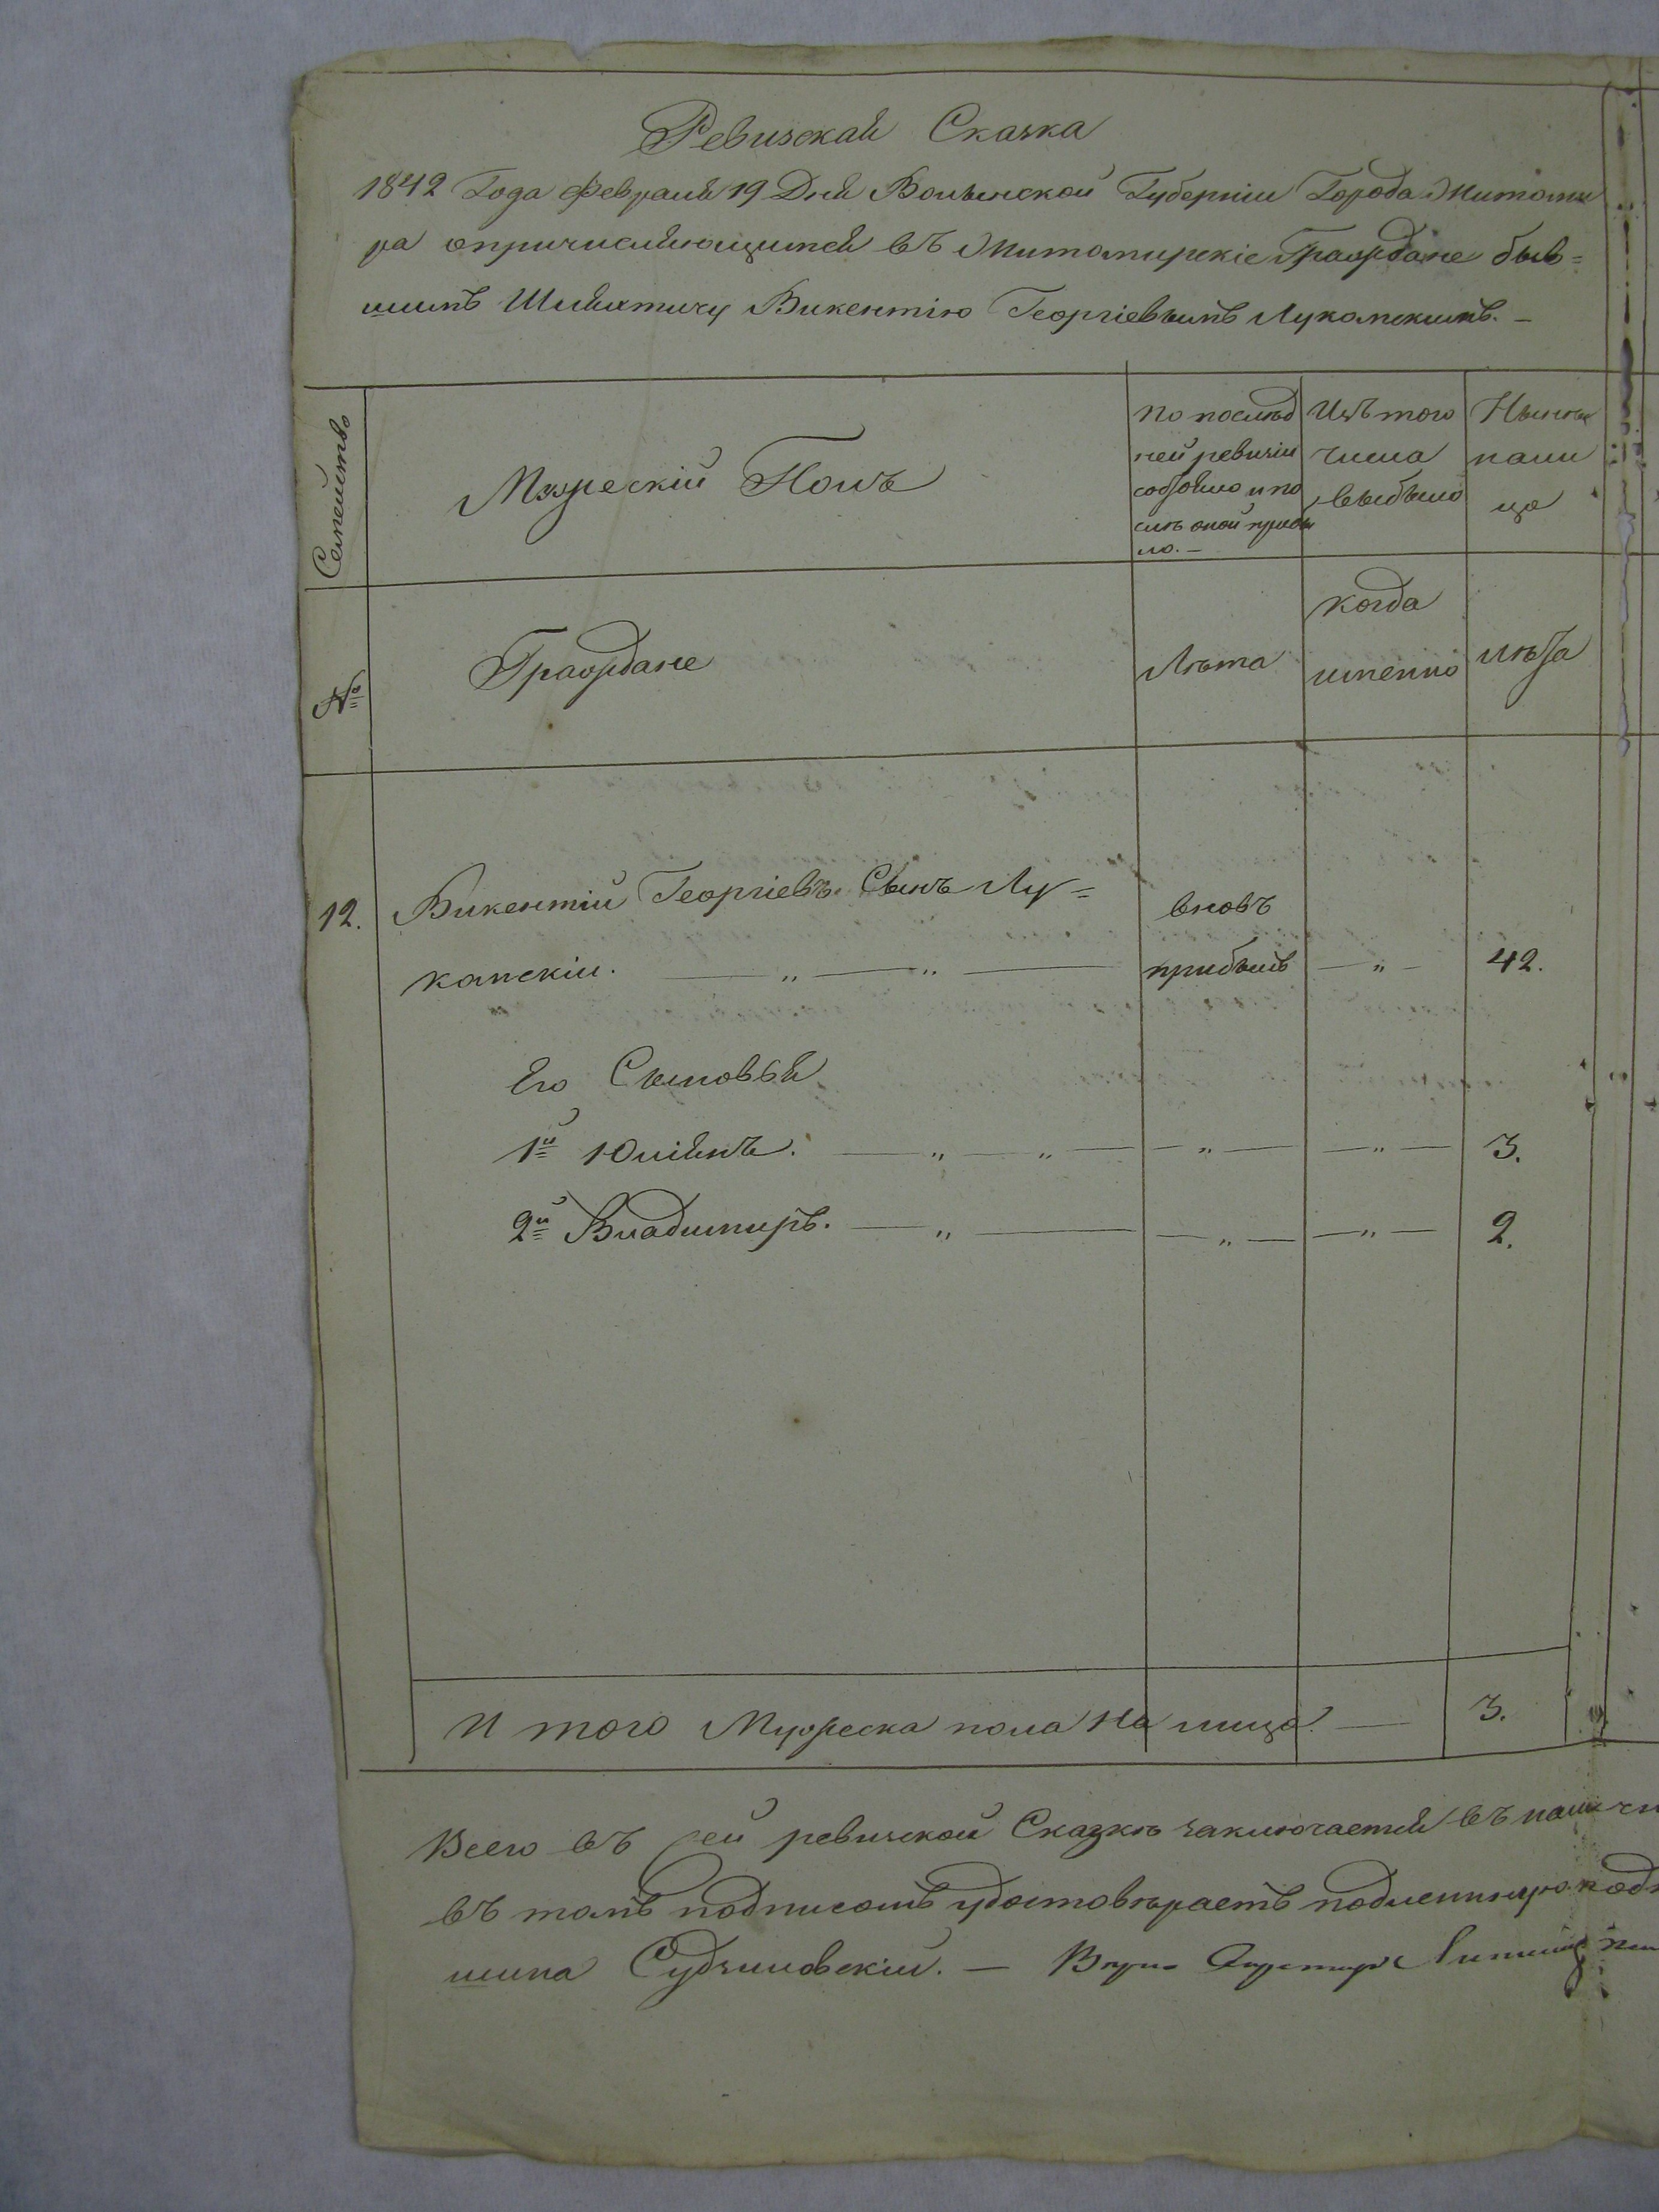 Ревизская Сказка
1842 Года Февраля 19 Дня Волынской Губерніи Города Житоми
ра о причисляющимся въ Житомирскіе Граждане быв=
шимъ Шляхтичу Викентію Георгіевымъ Лукомскимъ. –
Семейство
Мужескій Полъ
По послѣд
ней ревизіи
состояло и по
слѣ оной прибы
ло. –
Изъ того
числа
выбыло
Нынѣ
на ли
цо
№
Граждане
Лѣта
когда
именно
лѣта
12. Викентій Георгіевъ Сынъ Лу= вновь
комскіи. — „ — „ — прибылъ — „ — 42.
Его Сыновья
1й Юліянъ. — „ — „ — — „ — — „ — 3.
2й Владимиръ. — „ — — „ — — „ — 2.
И того Мужеска пола На лицо — 3.
Всего въ сей ревизской Сказкѣ заключается въ нали
въ томъ подписомъ удостовѣраетъ подленную под
шина Судзиловскіи. — Вѣрно